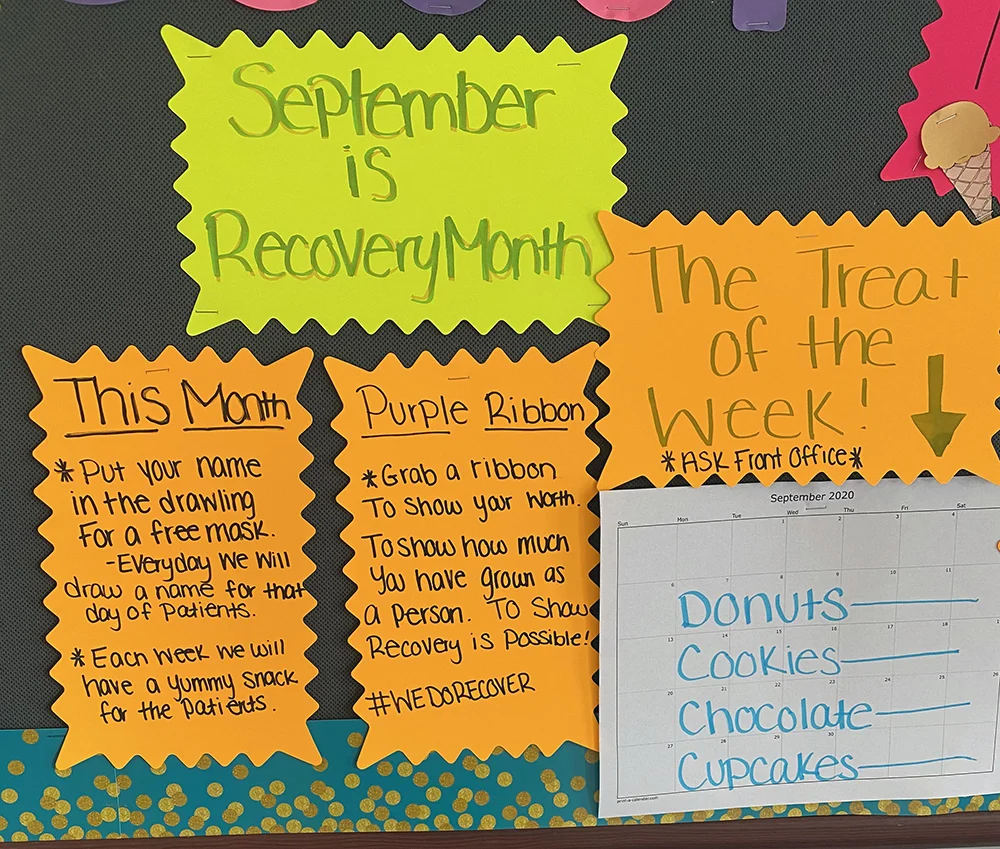 September
is
Recovery Month
This Month
*Put your name
in the drawling
For a free mask.
-Everyday we will
draw a name for that
day of Patients.
*Each week we will
have a yummy snack
for the Patients.
Purple Ribbon
*Grab a ribbon
To Show your worth.
To show how much
You have grown as
a Person. To Show
Recovery is Possible!
#WEDORECOVER
The Treat
of the
Week!
*ASK Front Office*
September 2020
Sun Mon Tue Wed Thu Fri Sat
1 2 3 4
6 7 8 9 10 11
Donuts
13 14 15 16 17 18
Cookies
20 21 22 23 24 25 26
Chocolate
27 28 29 30
Cupcakes
print-a-calendar.com